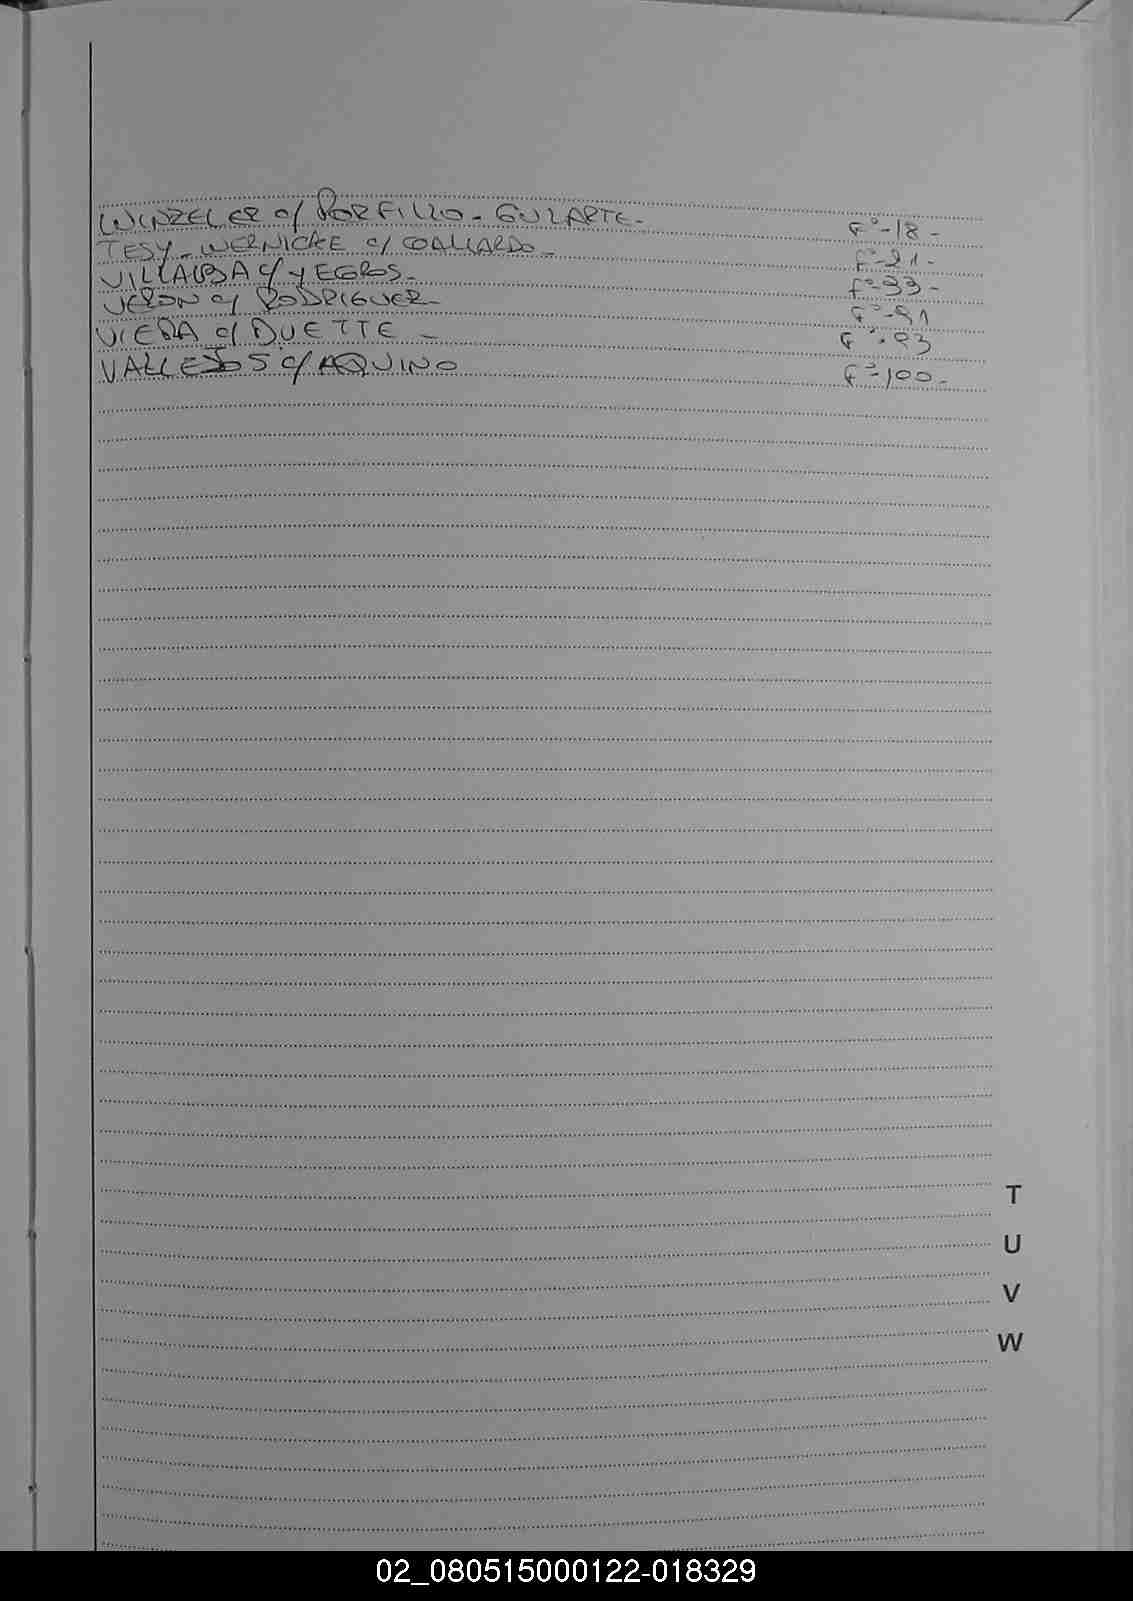 WINZELER c/ PORFILIO - GULARTE - Fº-18-
TESY - WERNICKE c/ GALLARDO - Fº-21-
VILLALBA c/ YEGROS - Fº-33-
VERON c/ RODRIGUEZ - Fº-91
VIERA c/ DUETTE - Fº-93
VALLEJOS c/ AQUINO Fº-100-
T
U
V
W
02_080515000122-018329